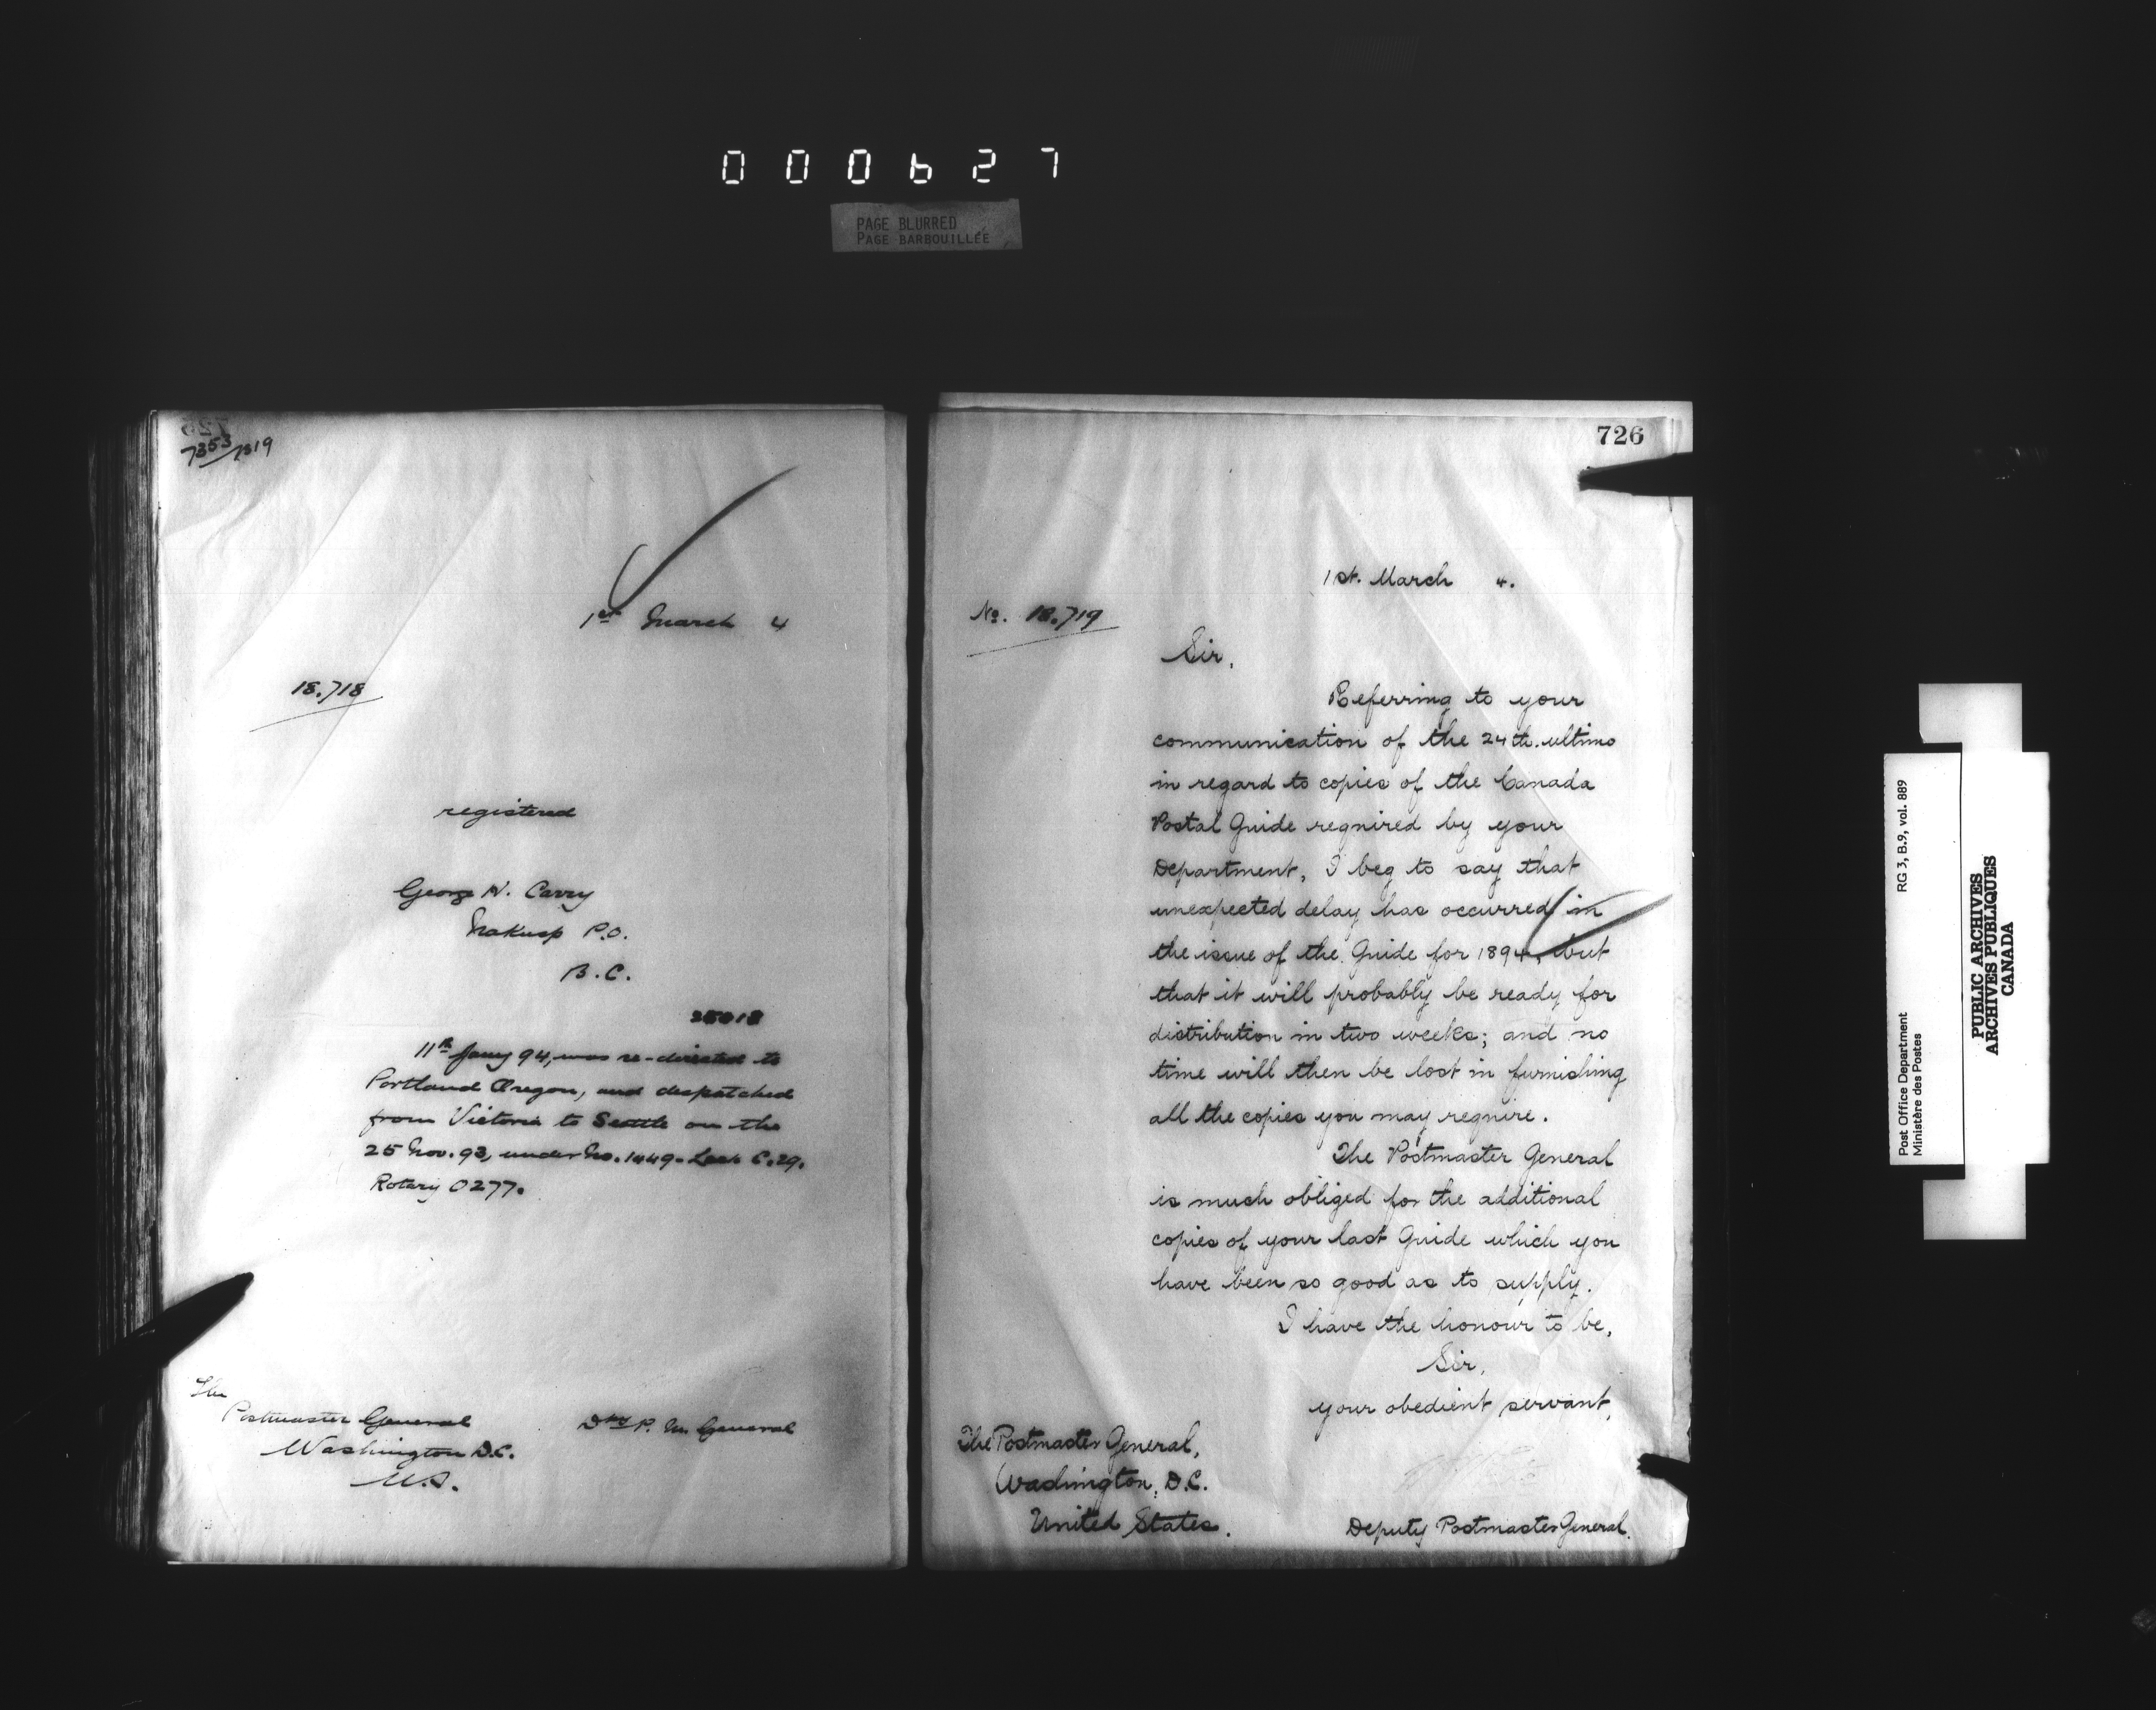 000627
PAGE BLURRED
PAGE BARBOUILLÉE
7353/7319
1st March 4
18.718
registered
George N. Carry
Nakusp P.O.
B.C.
25018
11th Jany 94, was re-directed to
Portland Oregon, and despatched
from Victoria to Seattle on the
25 Nov. 93, under No. 1449- Lock C.29.
Rotary 0277.
The
Postmaster General
Washington D.C.
U.S.
Dty P. M. General
726
1st. March 4.
No. 18.719
Sir,
Referring to your
communication of the 24th. ultimo
in regard to copies of the Canada
Postal Guide required by your
Department, I beg to say that
unexpected delay has occurred in
the issue of the Guide for 1894, but
that it will probably be ready for
distribution in two weeks; and no
time will then be lost in furnishing
all the copies you may require.
The Postmaster General
is much obliged for the additional
copies of your last Guide which you
have been so good as to supply.
I have the honour to be,
Sir,
your obedient servant,
The Postmaster General,
Washington, D.C.
United States.
Deputy Postmaster General.
Post Office Department
Ministère des Postes
RG 3, B.9, vol. 889
PUBLIC ARCHIVES
ARCHIVES PUBLIQUES
CANADA